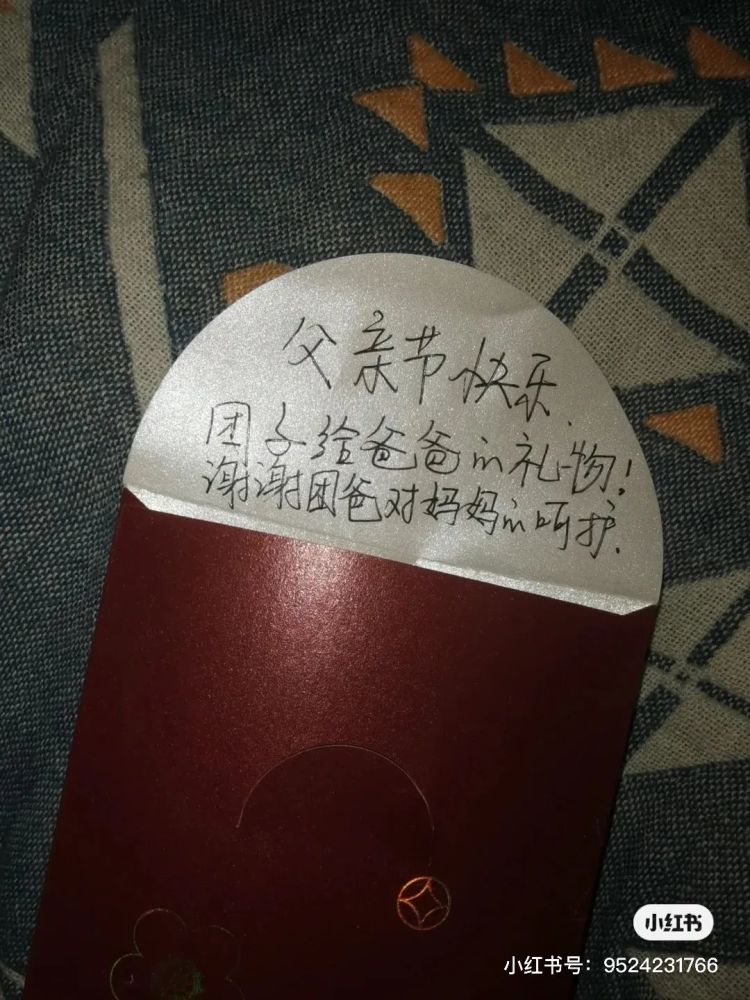 父亲节快乐.
团子给爸爸的礼物!
谢谢团爸对妈妈的呵护.
小红书
小红书号：9524231766